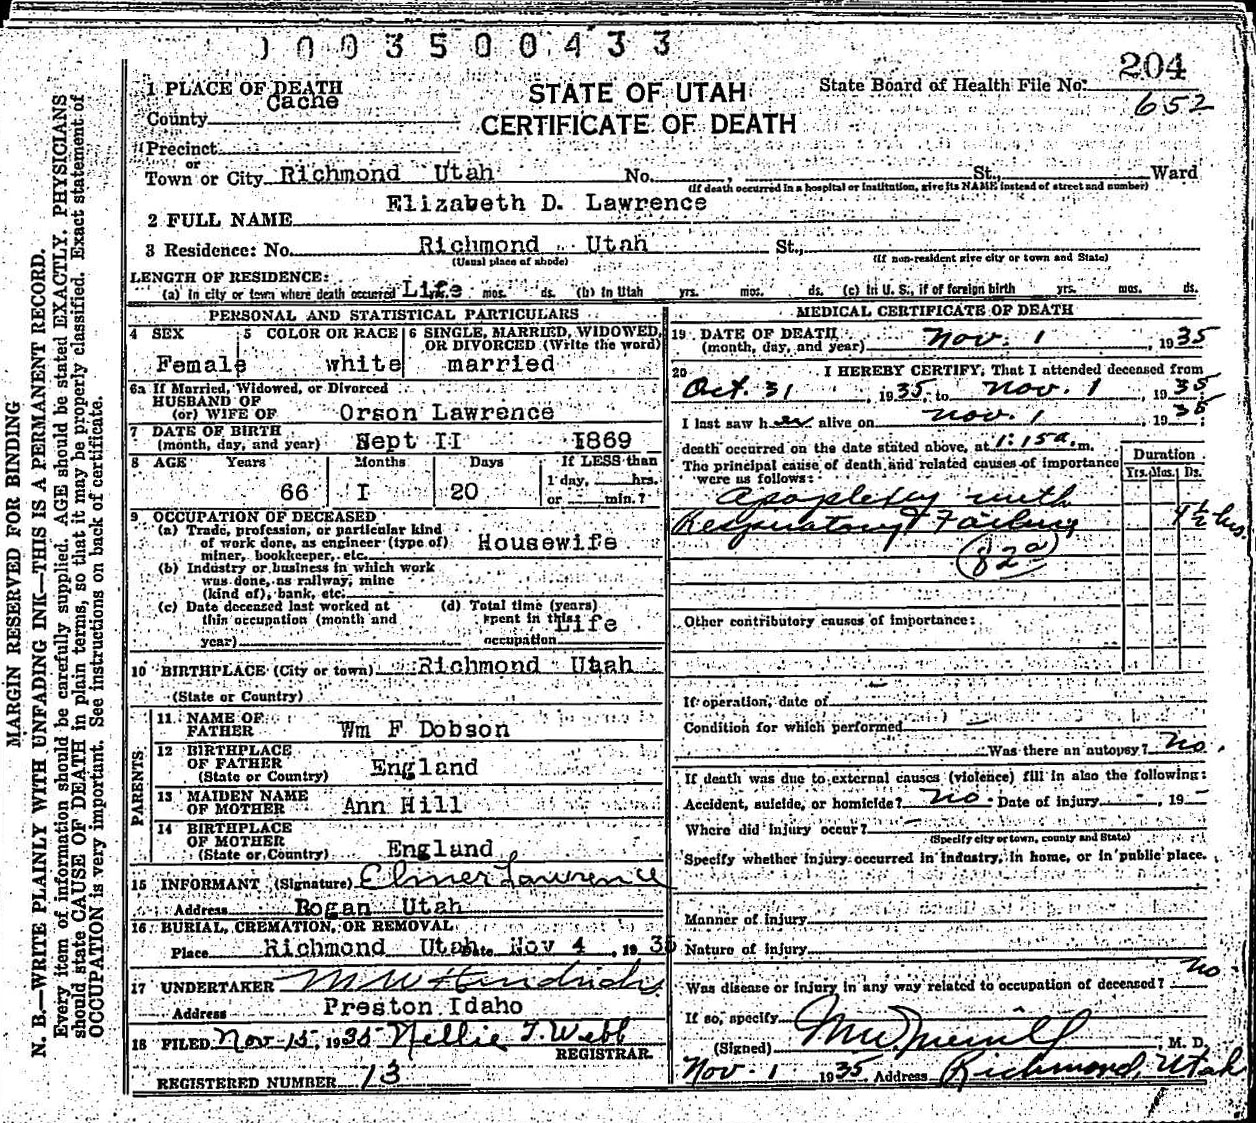 0003500433
204
State Board of Health File No.
652
1 PLACE OF DEATH
STATE OF UTAH
CERTIFICATE OF DEATH
County Cache
Precinct
or
Town or City Richmond Utah No. , St., Ward
(If death occurred in a hospital or institution, give its NAME instead of street and number)
2 FULL NAME Elizabeth D. Lawrence
3 Residence: No. Richmond Utah St.,
(Usual place of abode) (If non-resident give city or town and State)
LENGTH OF RESIDENCE:
(a) In city or town where death occurred Life yrs. mos. ds. (b) In Utah yrs. mos. ds. (c) In U. S., if of foreign birth yrs. mos. ds.
PERSONAL AND STATISTICAL PARTICULARS
4 SEX 5 COLOR OR RACE 6 SINGLE, MARRIED, WIDOWED, OR DIVORCED (Write the word)
Female white married
6a If Married, Widowed, or Divorced
HUSBAND OF
(or) WIFE OF Orson Lawrence
7 DATE OF BIRTH
(month, day, and year) Sept II 1869
8 AGE Years Months Days If LESS than
1 day, hrs.
66 I 20 or min.?
9 OCCUPATION OF DECEASED
(a) Trade, profession, or particular kind
of work done, as engineer (type of)
miner, bookkeeper, etc. Housewife
(b) Industry or business in which work
was done, as railway, mine
(kind of), bank, etc.
(c) Date deceased last worked at
this occupation (month and
year)
(d) Total time (years)
spent in this
occupation Life
10 BIRTHPLACE (City or town) Richmond Utah
(State or Country)
PARENTS
11 NAME OF
FATHER Wm F Dobson
12 BIRTHPLACE
OF FATHER England
(State or Country)
13 MAIDEN NAME
OF MOTHER Ann Hill
14 BIRTHPLACE
OF MOTHER
(State or Country) England
15 INFORMANT (Signature) Elmer Lawrence
Address Logan Utah
16 BURIAL, CREMATION, OR REMOVAL
Place Richmond Utah Date Nov 4 , 1935
17 UNDERTAKER M W Hendricks
Address Preston Idaho
18 FILED Nov 15, 1935 Nellie T. Webb
REGISTRAR.
REGISTERED NUMBER 13
MEDICAL CERTIFICATE OF DEATH
19 DATE OF DEATH
(month, day, and year) Nov. 1 , 1935
20 I HEREBY CERTIFY, That I attended deceased from
Oct. 31 , 1935, to Nov. 1 , 1935
I last saw her alive on Nov. 1 , 1935;
death occurred on the date stated above, at 1:15 a. m.
The principal cause of death and related causes of importance
were as follows:
Duration
Yrs. Mos. Ds.
Apoplexy with
Respiratory Failure 4 1/2 hrs.
(82a)
Other contributory causes of importance:
If operation, date of
Condition for which performed
Was there an autopsy? No.
If death was due to external causes (violence) fill in also the following:
Accident, suicide, or homicide? No. Date of injury , 19
Where did injury occur?
(Specify city or town, county and State)
Specify whether injury occurred in industry, in home, or in public place.
Manner of injury
Nature of injury
Was disease or injury in any way related to occupation of deceased? No
If so, specify
(Signed) M. D.
Nov. 1 1935 Address Richmond, Utah
MARGIN RESERVED FOR BINDING
N. B.—WRITE PLAINLY WITH UNFADING INK—THIS IS A PERMANENT RECORD.
Every item of information should be carefully supplied. AGE should be stated EXACTLY. PHYSICIANS
should state CAUSE OF DEATH in plain terms, so that it may be properly classified. Exact statement of
OCCUPATION is very important. See instructions on back of certificate.